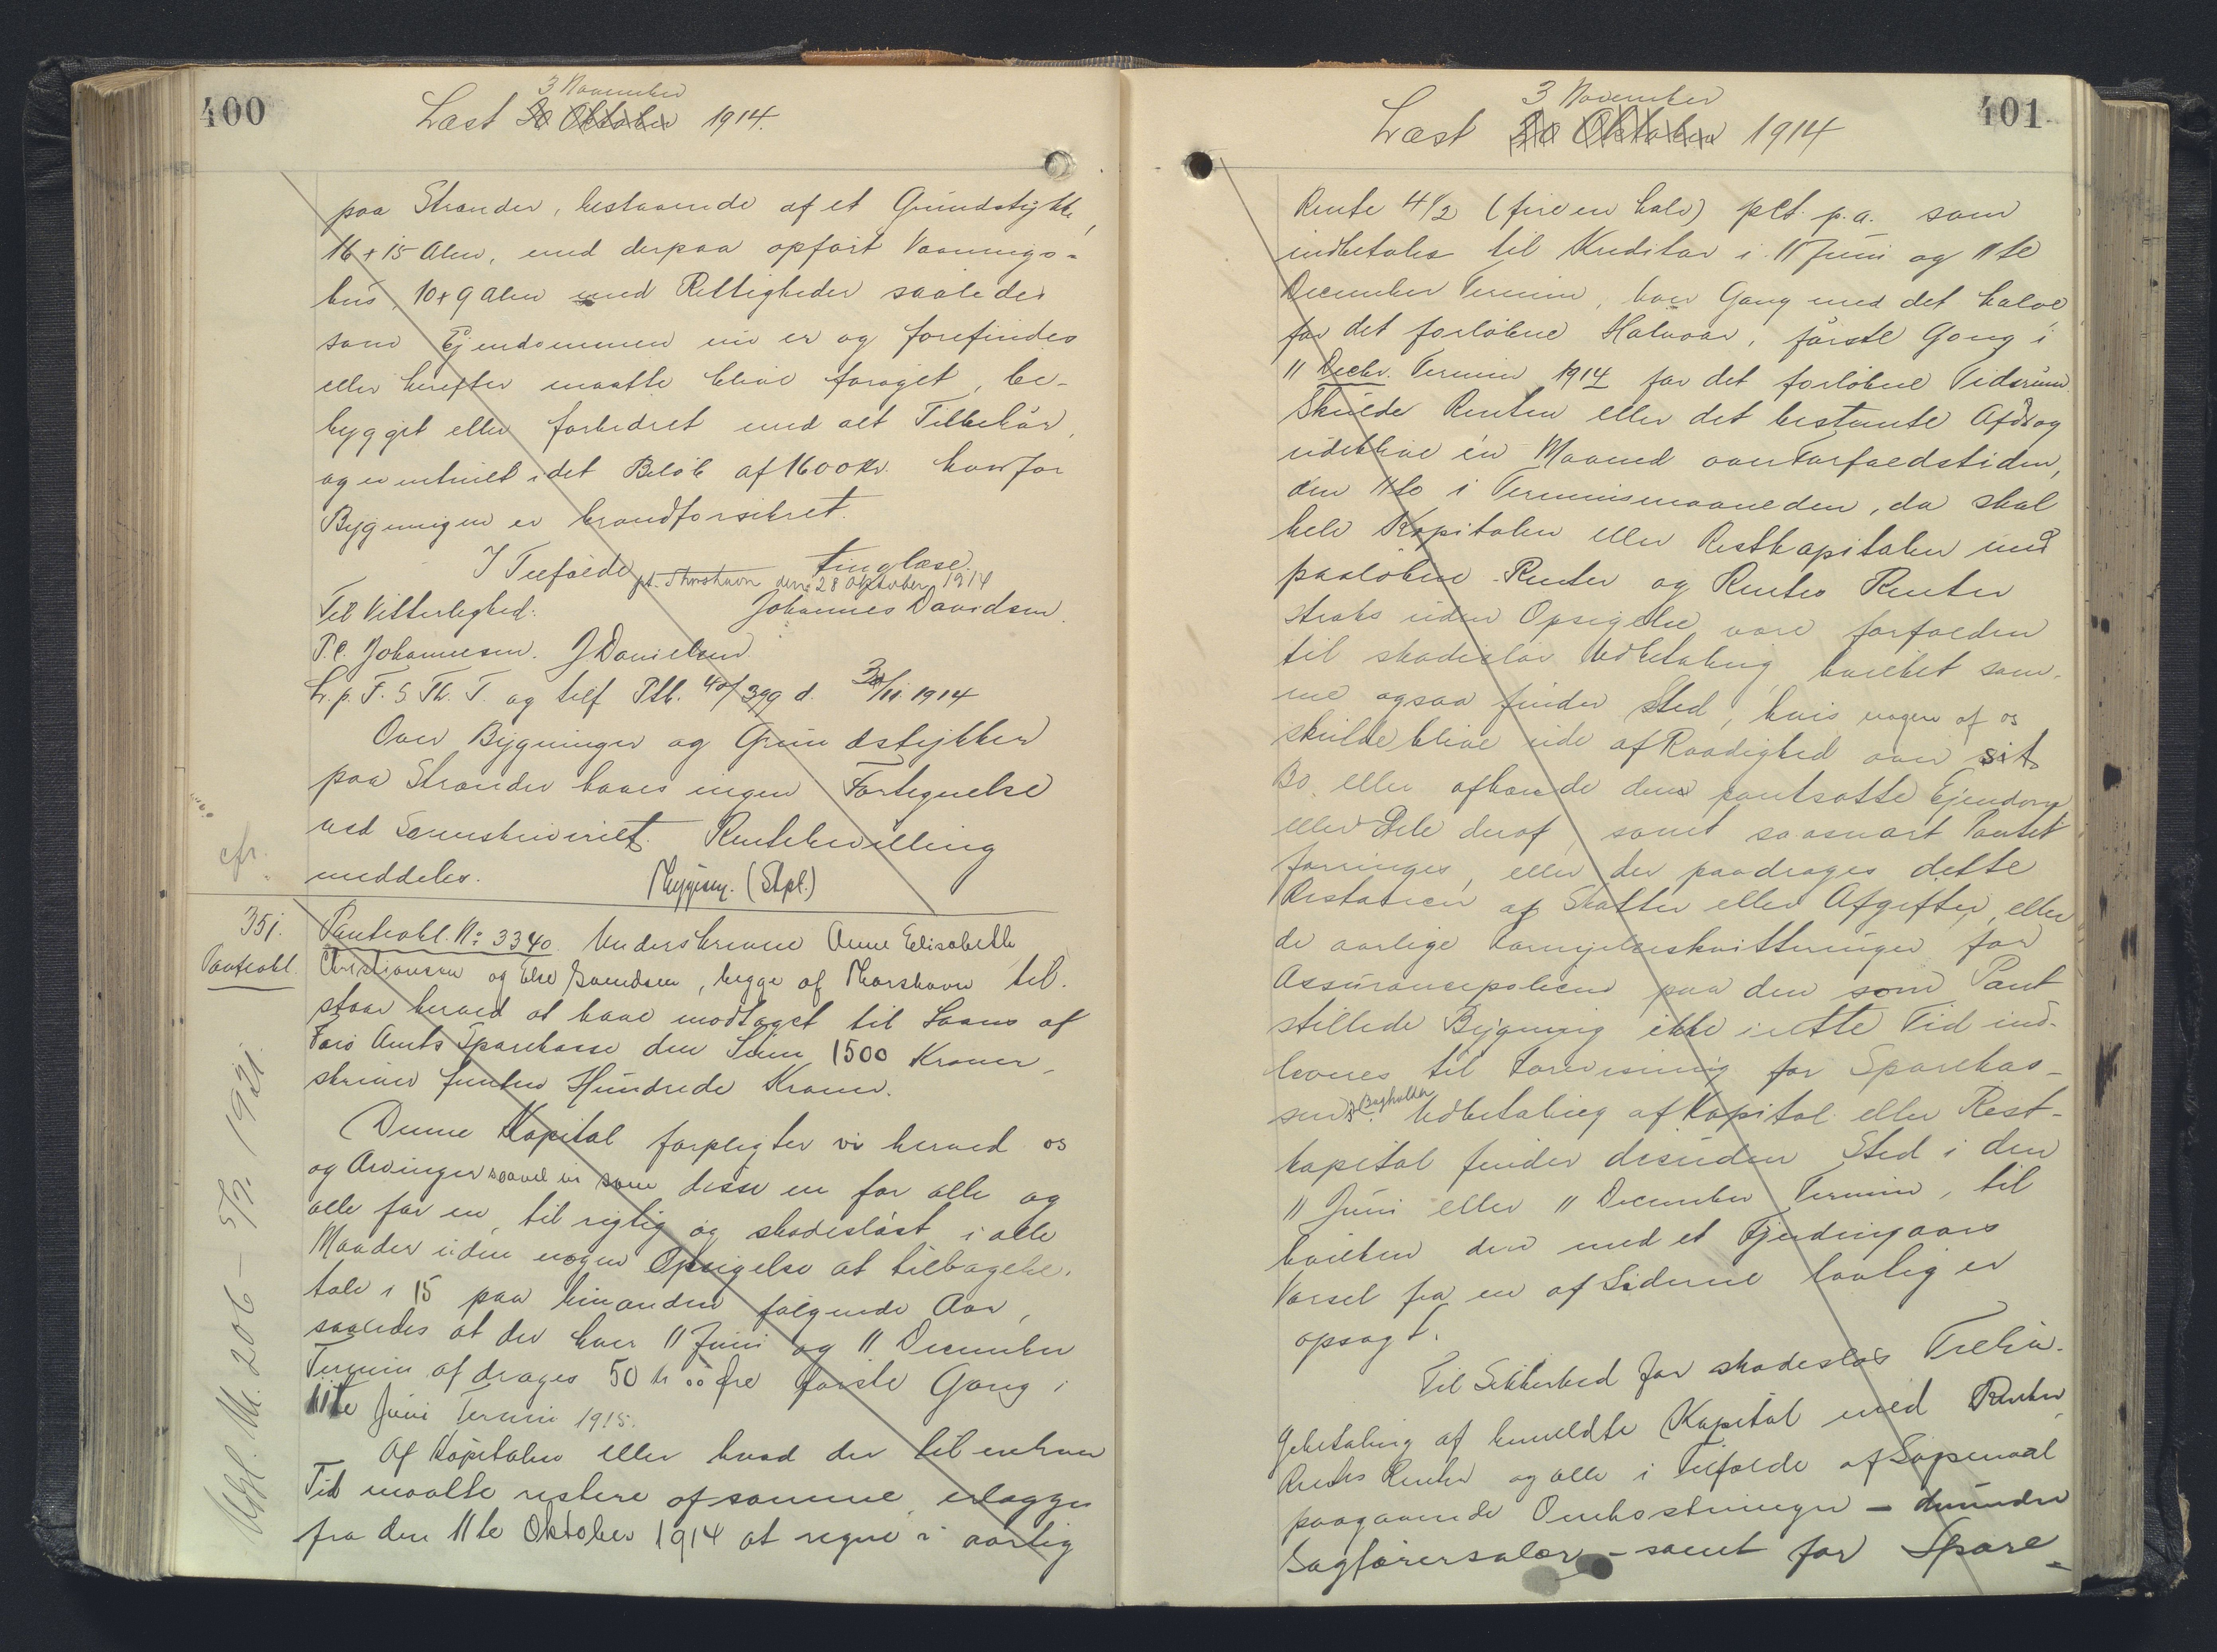 400
3 November
Læst 30 Oktober 1914.
paa Strander, bestaaende af et Grundstykke,
16 + 15 Alen, med derpaa opført Vaanings-
hus, 10 + 9 Alen med Rettigheder saaledes
som Ejendommen nu er og forefindes
eller herefter maatte blive forøget, be-
bygget eller forbedret med alt Tilbehør,
og eventuelt i det Beløb af 1600 Kr. hvorfor
Bygningen er brandforsikret.
I Tilfælde tinglæse.
pt. Thorshavn den 28 Oktober 1914
Til Vitterlighed: Johannes Davidsen.
P.C. Johannesen. J Danielsen
L. p. F. S. Th. T. og tilf Ptb. 40/399 d. 3/11 1914
Over Bygninger og Grundstykker
paa Strander haves ingen Fortegnelse
ved Sorenskriveriet. Rentebevilling
meddeles. (Stpl.)
cfr.
351. Panteobl. No 3340. Underskrevne Anne Elisabeth
Panteobl. Christiansen og Else Svendsen, begge af Thorshavn til-
staar herved at have modtaget til Laans af
Færø Amts Sparekasse den Sum 1500 Kroner,
skriver femten Hundrede Kroner.
Denne Kapital forpligter vi herved os
og Arvinger saavel vi som disse en for alle og
alle for en, til rigtig og skadesløst i alle
Maader uden nogen Opsigelse at tilbagebe-
tale i 15 paa hinanden følgende Aar,
saaledes at der hver 11 Juni og 11 December
Termin afdrages 50 kr 00 Øre første Gang i
11te Juni Termin 1915.
Af Kapitalen eller hvad der til enhver
Tid maatte restere af samme, erlægges
fra den 11te Oktober 1914 at regne i aarlig
Udsl. M. 206 – 5/2 1921.
401
3 November
Læst 30 Oktober 1914
Rente 4 1/2 (fire en halv) pct. p.a. som
indbetales til Kreditor i 11 Juni og 11te
December Termin, hver Gang med det halve
for det forløbne Halvaar, første Gang i
11 Decbr. Termin 1914 for det forløbne Tidsrum
Skulde Renten eller det bestemte Afdrag
udeblive én Maaned over Forfaldstiden,
den 11te i Terminsmaaneden, da skal
hele Kapitalen eller Restkapitalen med
paaløbne Renter og Renters Renter
straks uden Opsigelse være forfalden
til skadesløs Udbetaling, hvilket sam-
me ogsaa finder Sted, hvis nogen af os
skulde blive ude af Raadighed over sit
Bo eller afhænde den pantsatte Ejendom
eller Dele deraf, samt saasnart Pantet
forringes, eller der paadrages dette
Restancer af Skatter eller Afgifter, eller
de aarlige Fornyelseskvitteringer for
Assurancepolicen paa den som Pant
stillede Bygning ikke i rette Tid ind-
leveres til Forevisning for Sparekas-
sens Bogholder. Udbetaling af Kapital eller Rest-
kapital finder desuden Sted i den
11 Juni eller 11 December Termin, til
hvilken den med et Fjerdingaars
Varsel fra en af Siderne lovlig er
opsagt.
Til Sikkerhed for skadesløs Tilba-
gebetaling af bemeldte Kapital med Renter,
Renters Renter og alle i Tilfælde af Søgsmaal
paagaaende Omkostninger – derunder
Sagførersalær – samt for Spare-